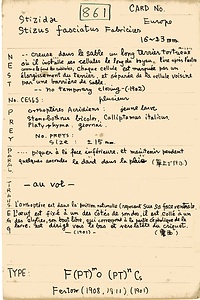 861
CARD No.
Stizidae
Europe
Stizus fasciatus Fabricius
16~23mm
NEST
-- creuse dans le sable un long terrier tortueux
où il installe ses cellules le long du boyau, l'une après l'autre
comme le fait le suivant. Chaque cellule est marquée par un
élargissement du terrier, et séparée de la cellule voisine
par une barrière de sable.
-- no temporary closing - (1902)
No. CELLS: plusieurs
PREY
orthoptères Acridiens : jeune larve
Stenobothrus bicolor, Calliptamus italicus,
Platyphyma giornai.
No. PREYS:
SIZE : ≥ 15 mm
PARAL.
... piquer à la face inférieure, et maintenir pendant
quelques secondes le dard dans la plaie
TRANSP.
- au vol -
EGG
L'orthoptère est dans la position naturelle (reposant sur sa face ventrale).
L'œuf est fixé à un des côtés du sordo, il est collé à un
des stylets, son bout libre, qui correspond à la partie céphalique de la
larve, est dirigé vers le bas et vers la tête du criquet.
(1901)
TYPE:
Ferton (1908, 1911) (1901)